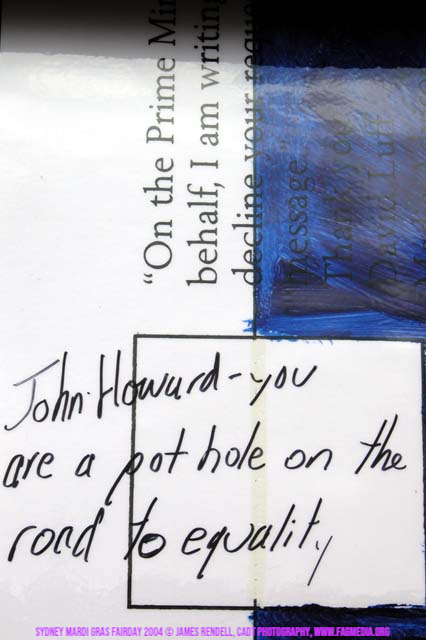 "On the Prime Min
behalf, I am writing
decline your requ
message."
Thank you
David Luff
John Howard - you
are a pot hole on the
road to equality
SYDNEY MARDI GRAS FAIRDAY 2004 © JAMES RENDELL, CADT PHOTOGRAPHY, WWW.FAGMEDIA.ORG